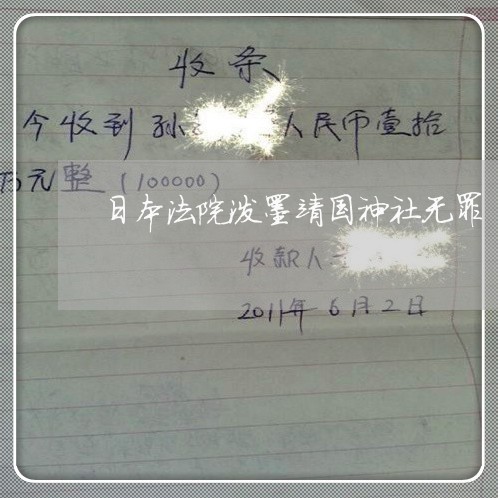 收条
今收到孙 人民币壹拾
万元整（100000）
日本法院泼墨靖国神社无罪
收款人
2011年6月2日